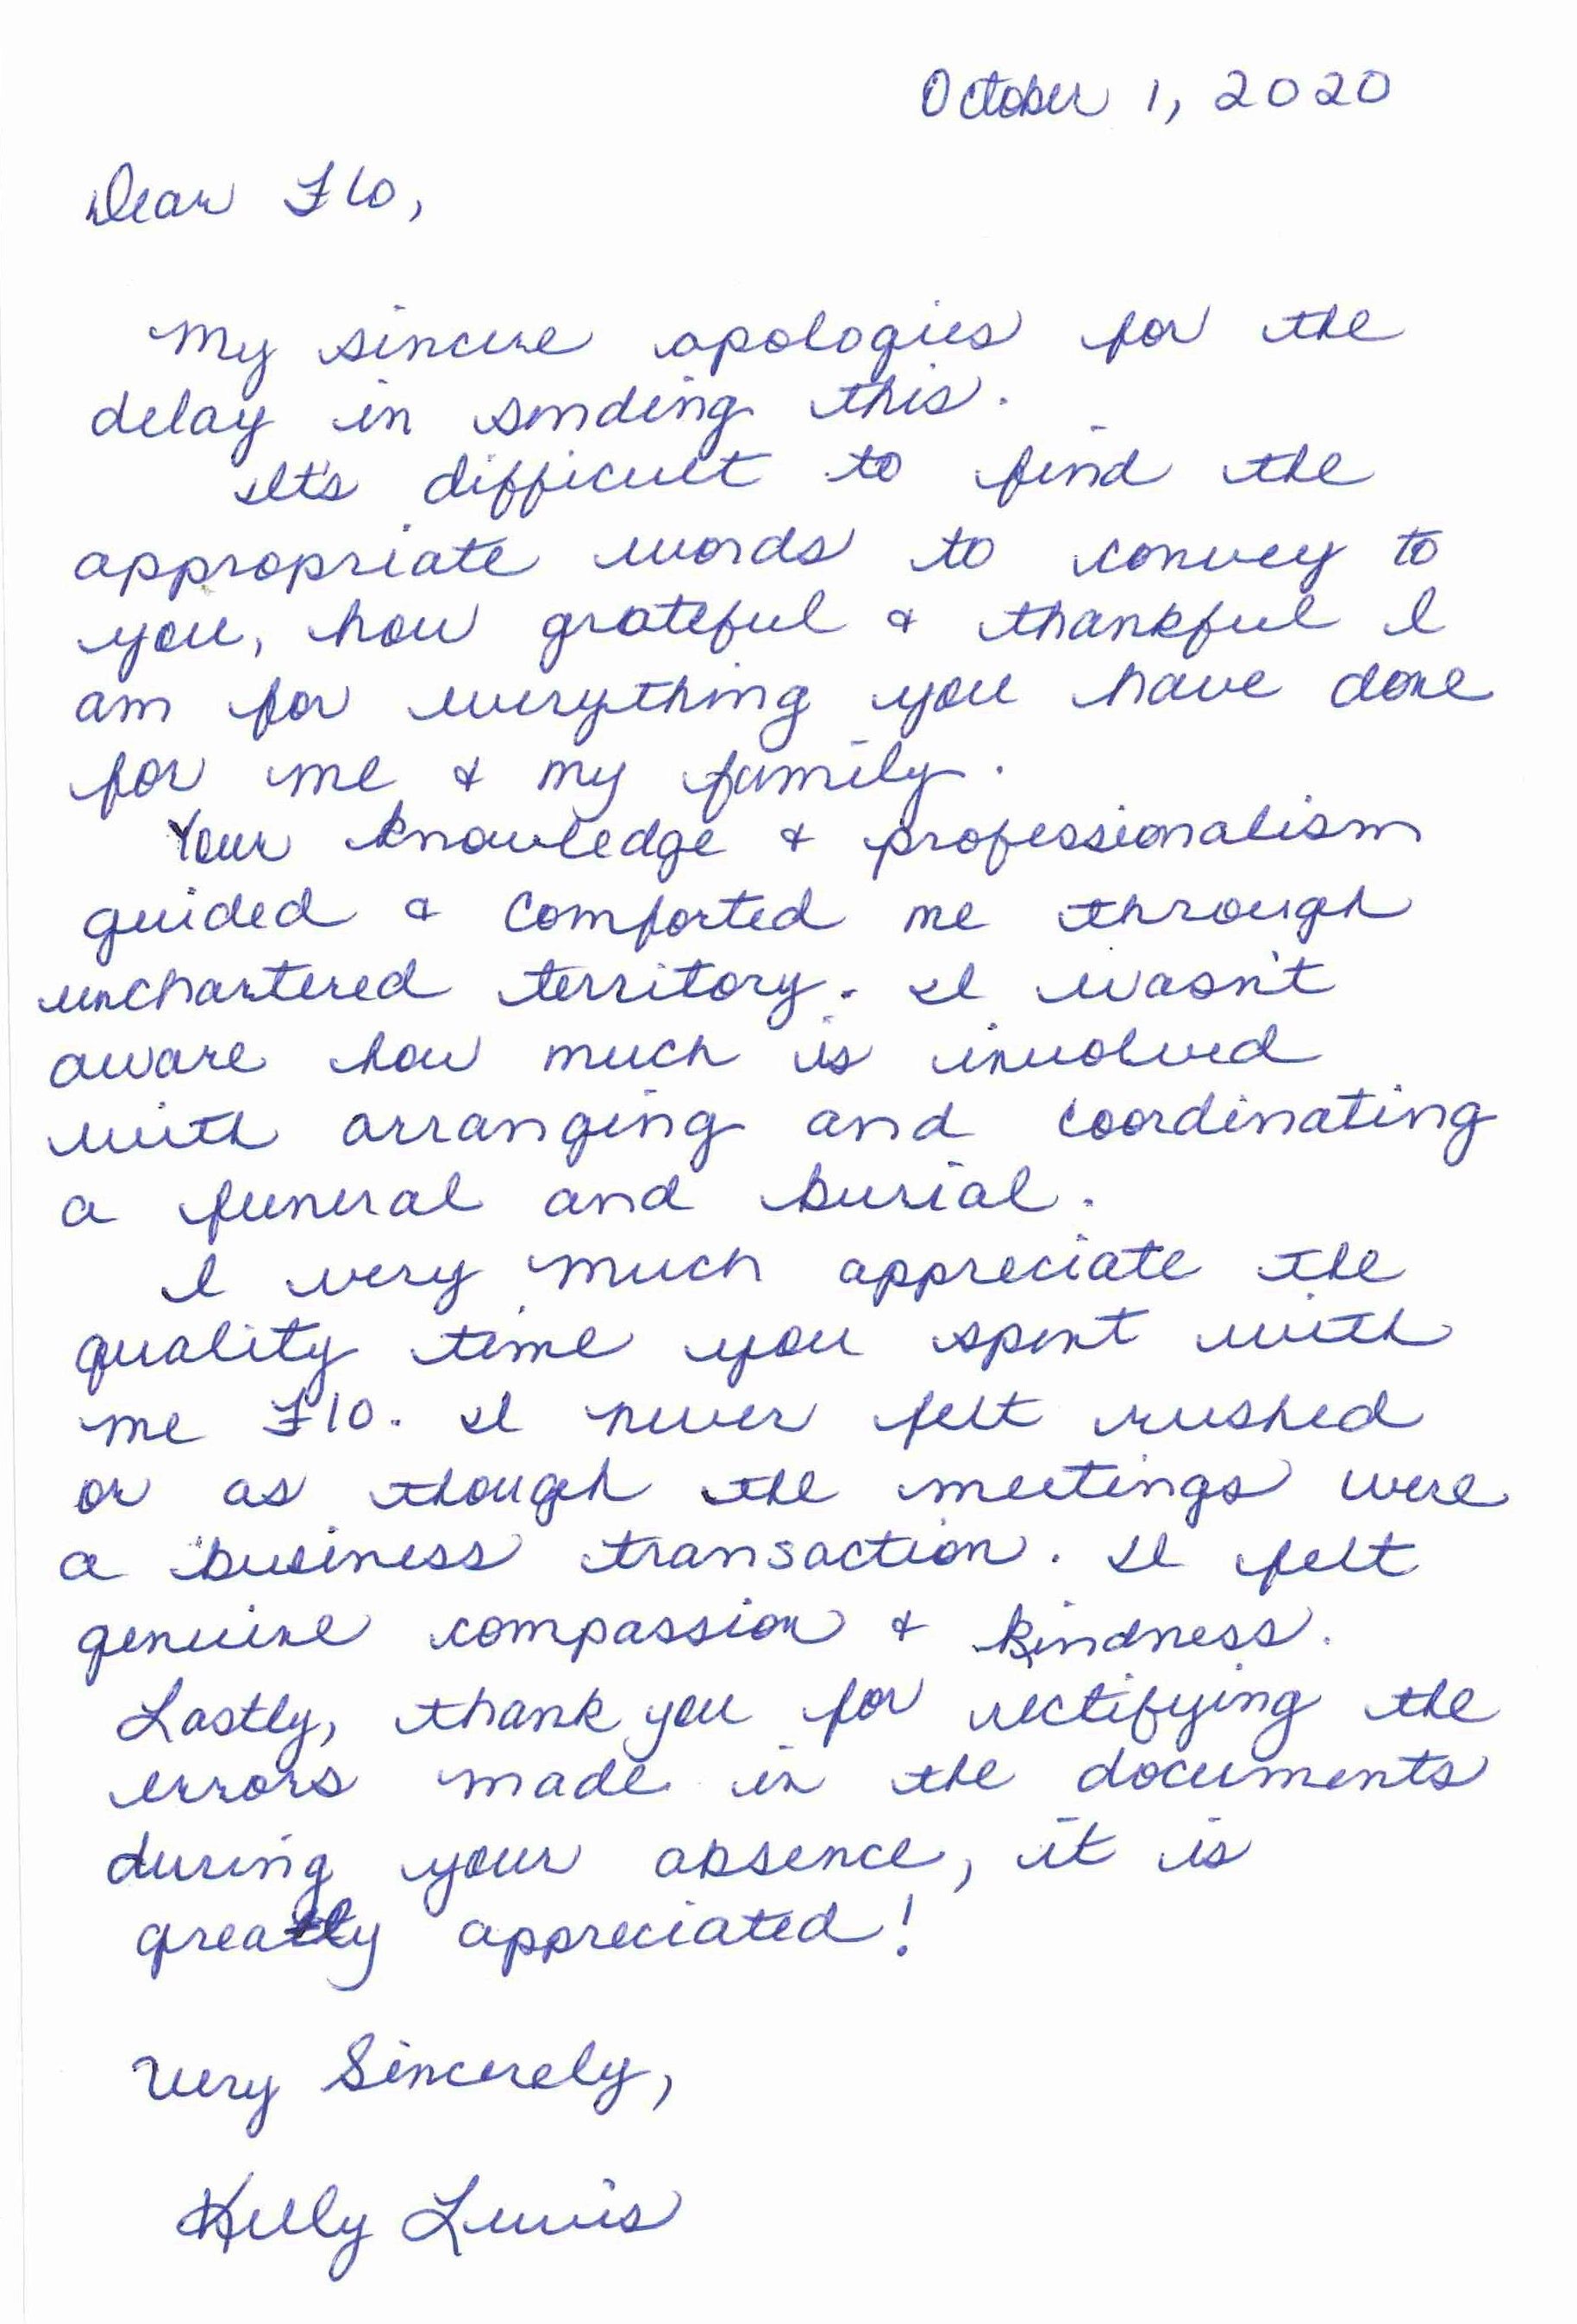 October 1, 2020
Dear Flo,
My sincere apologies for the
delay in sending this.
It's difficult to find the
appropriate words to convey to
you, how grateful & thankful I
am for everything you have done
for me & my family.
Your knowledge & professionalism
guided & comforted me through
unchartered territory. I wasn't
aware how much is involved
with arranging and coordinating
a funeral and burial.
I very much appreciate the
quality time you spent with
me Flo. I never felt rushed
or as though the meetings were
a business transaction. I felt
genuine compassion & kindness.
Lastly, thank you for rectifying the
errors made in the documents
during your absence, it is
greatly appreciated!
Very Sincerely,
Kelly Lewis